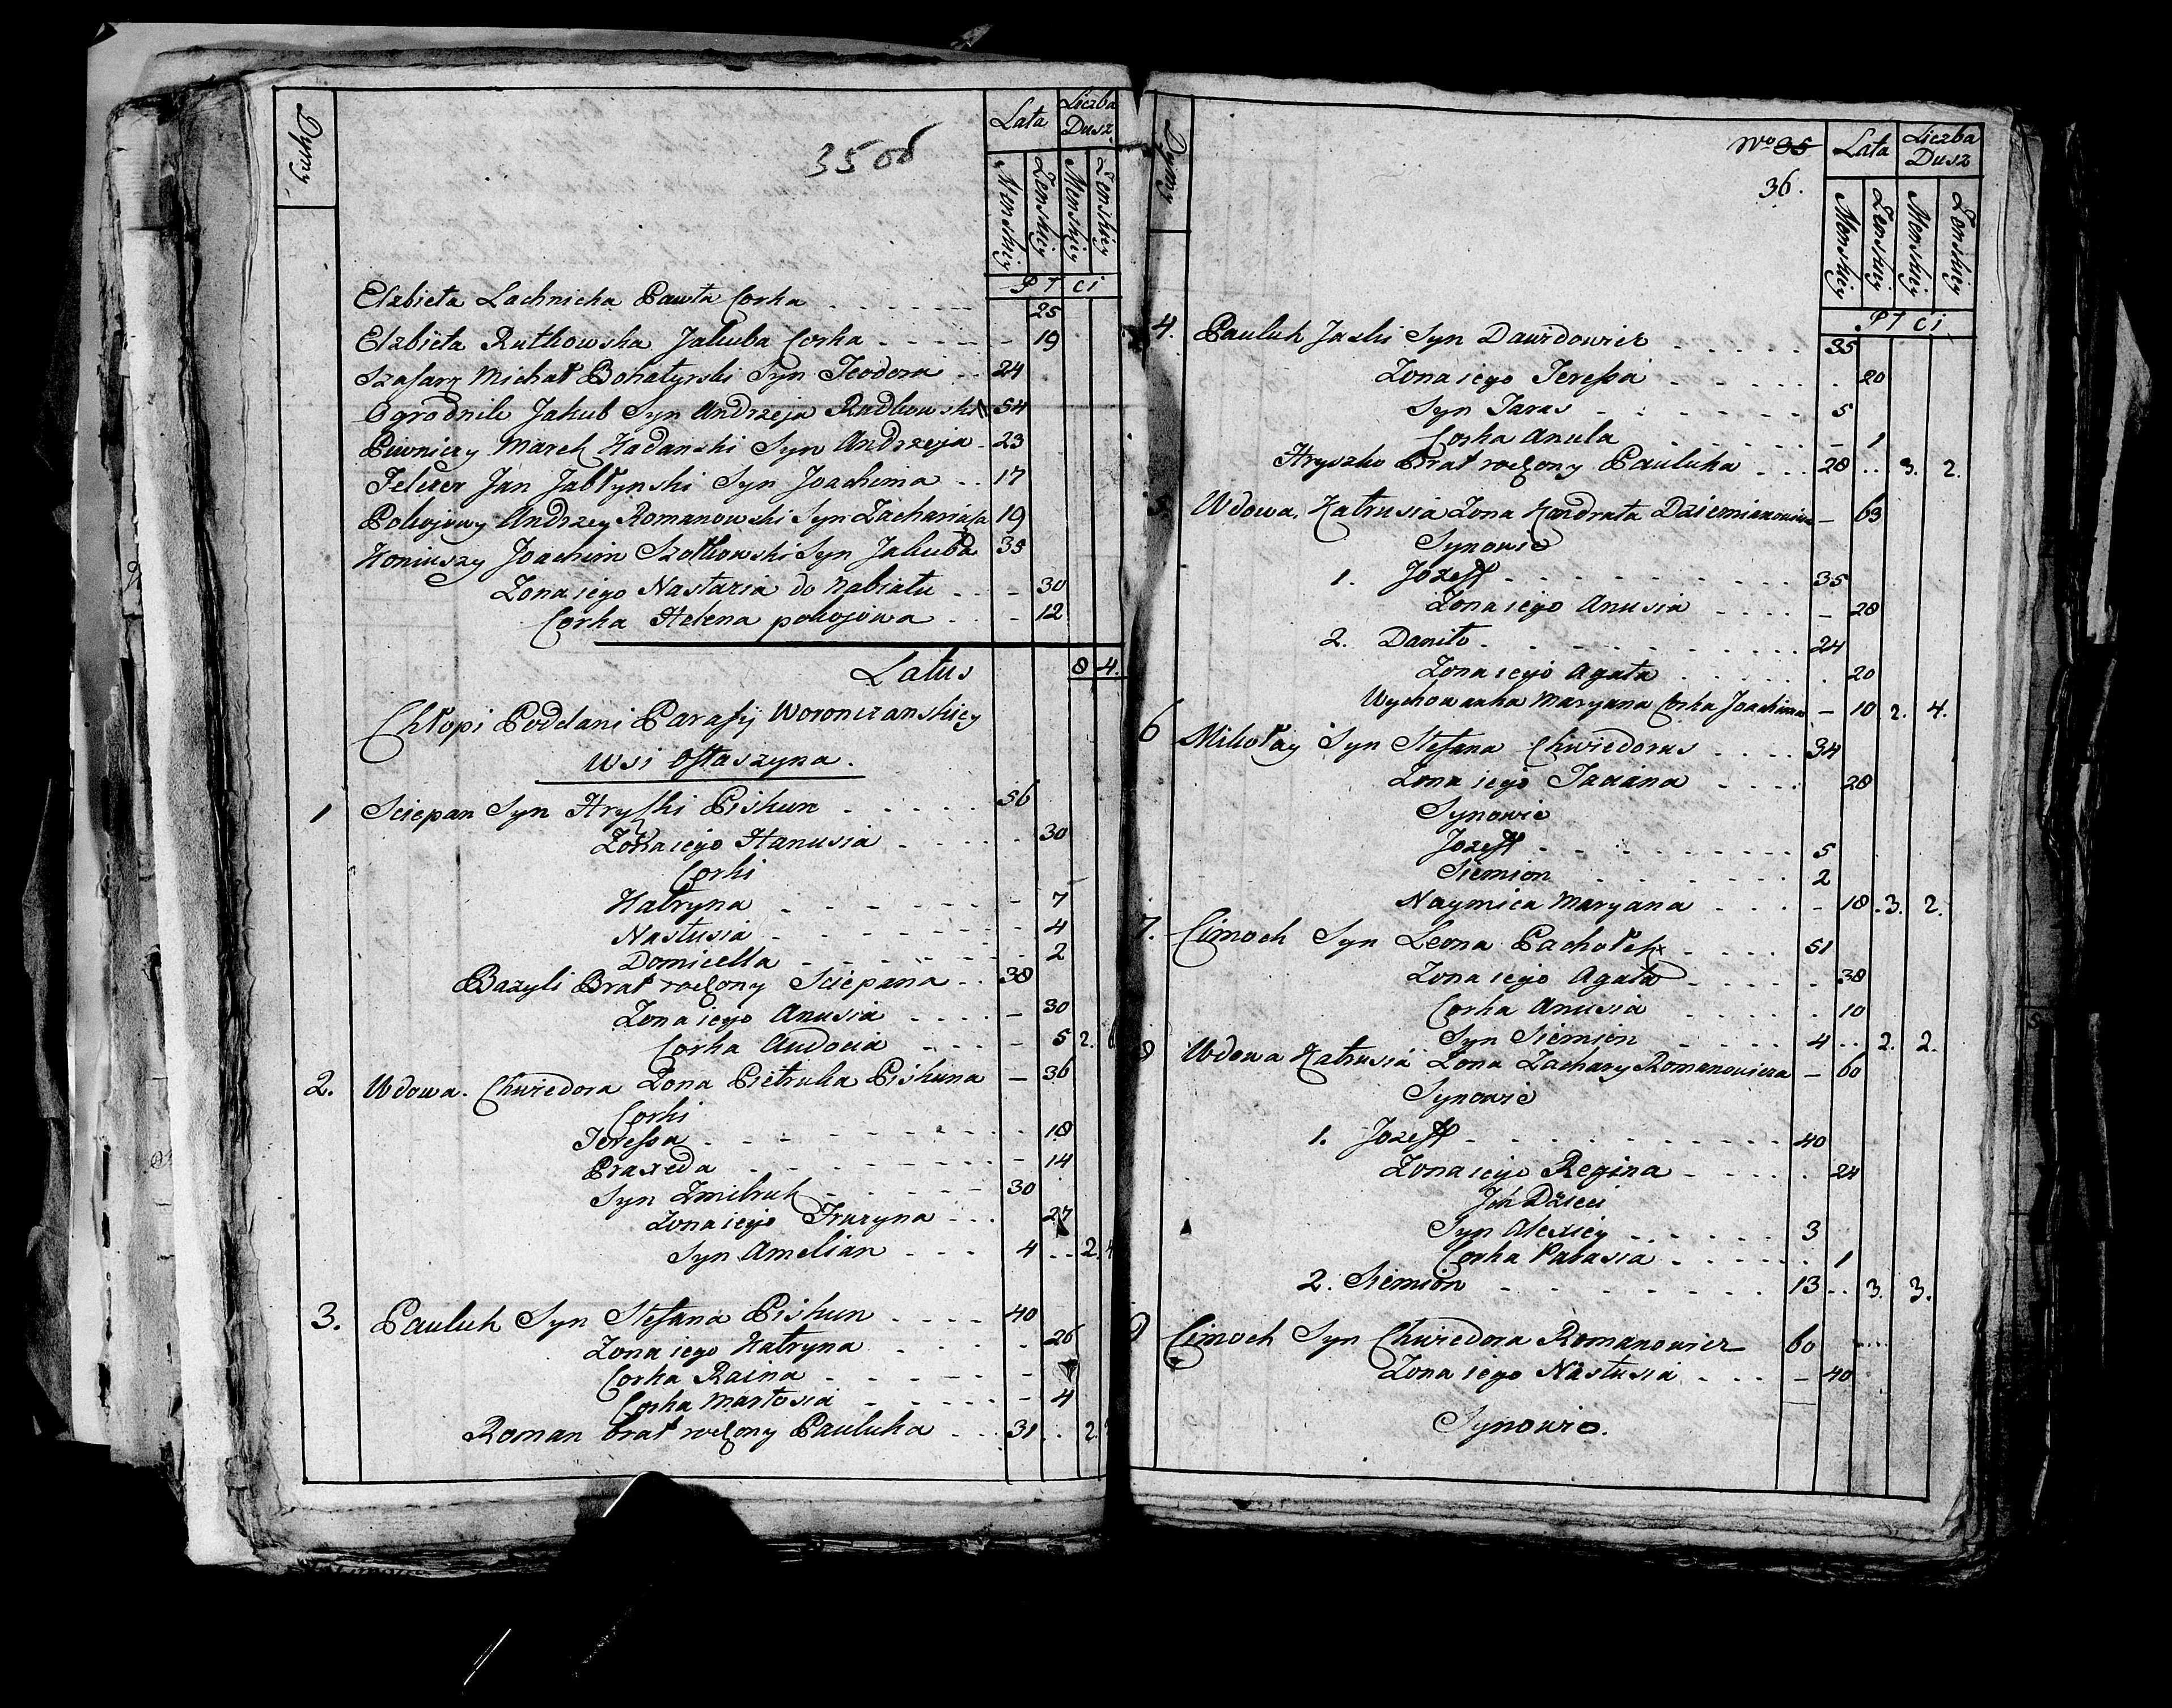 Dymy.
35 об
Lata
Liczba Dusz.
Męnskiey
Żenskiey
Męnskiey
Żenskiey
Płci
Elzbieta Lachnicka Pawła Corka - 25
Elzbieta Rutkowska Jakuba Corka - 19
Szafarz Michał Bohatyrski Syn Teodora 24
Ogrodnik Jakub Syn Andrzeja Radkowski 54
Piwniczy Marek Kadanski Syn Andrzeja 23
Felczer Jan Jabłynski Syn Joachima 17
Pokojowy Andrzey Romanowski Syn Zachariasza 19
Koniuszy Joachim Szotkowski Syn Jakuba 35
Żona iego Nastazia do Nabiału - 30
Corka Helena pokojowa - 12
Latus 8 4.
Chłopi Poddani Parafij Woronczanskiey
Wsi Ostaszyna.
1 Sciepan Syn Hryszki Piskun 56
Żona iego Hanusia 30
Corki
Katryna - 7
Nastusia - 4
Domicella - 2
Bazyli Brat rodzony Sciepana 38
Żona iego Anusia - 30
Corka Audocia - 5 2.
2. Wdowa Chwiedora Żona Pietruka Piskuna - 36
Corki
Teressa 18
Praxeda - 14
Syn Zmitruk 30
Żona iego Fruzyna 27
Syn Amelian 4 2.
3. Pauluk Syn Stefana Piskun 40
Żona iego Katryna 26
Corka Raina -
Corka Martosia - 4
Roman brat rodzony Pauluka 31 2.
Dymy
No 35
36.
Lata
Liczba Dusz
Męnskiey
Żenskiey
Męnskiey
Żenskiey
Płci
4. Pauluk Jaski Syn Dawidowicz 35
Żona iego Teressa 20
Syn Taras 5
Corka Anula - 1
Hryszko Brat rodzony Pauluka 28 3. 2.
5 Wdowa Katrusia Żona Kandrata Dziemianowicza - 63
Synowie
1. Jozeff 35
Żona iego Anusia - 28
2. Daniło 24
Żona iego Agata 20
Wychowanka Maryana Corka Joachima - 10 2. 4.
6 Mikołay Syn Stefana Chwiedorus 34
Żona iego Taciana 28
Synowie
Jozeff 5
Siemion 2
Naymica Maryana - 18 3. 2.
7. Cimoch Syn Leona Pachołek 51
Żona iego Agata 38
Corka Anusia 10
Syn Siemion 4 2. 2.
8 Wdowa Katrusia Żona Zachary Romanowicza - 60
Synowie
1. Jozeff 40
Żona iego Regina 24
Jch Dzieci
Syn Alexiey 3
Corka Pałasia 1
2. Siemion 13 3. 3.
9 Cimoch Syn Chwiedora Romanowicz 60
Żona iego Nastusia - 40
Synowie.